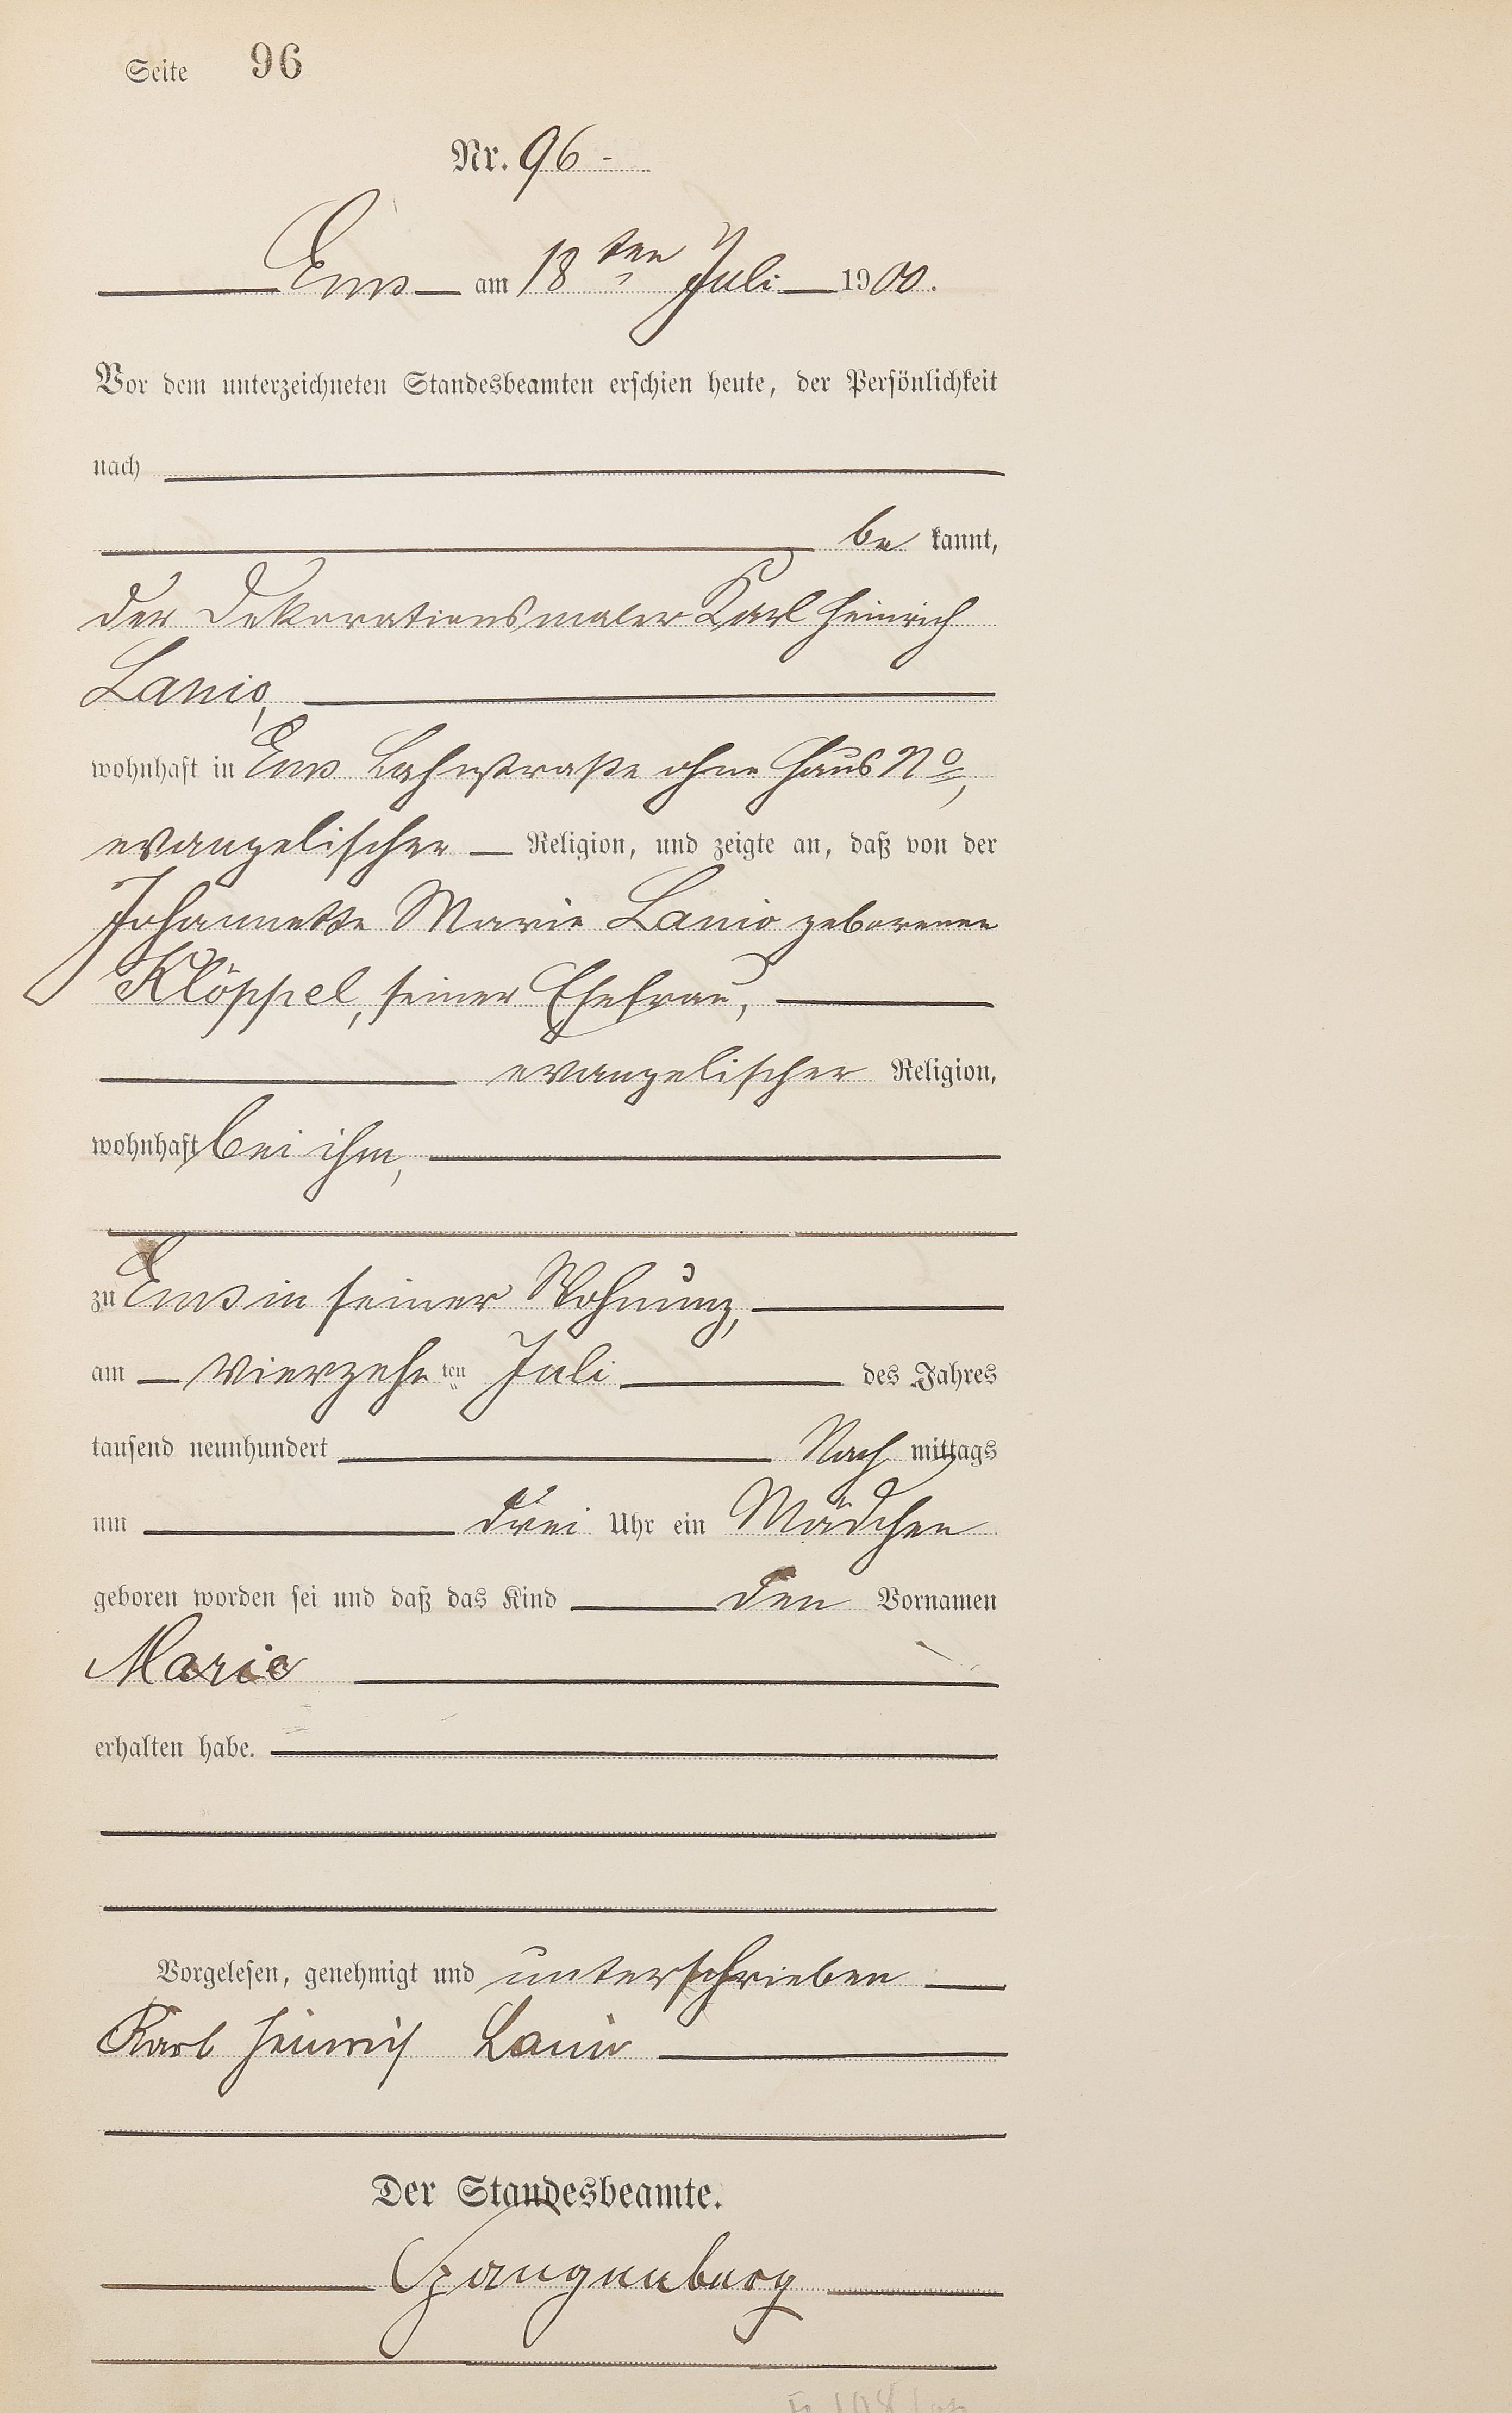 Seite 96
Nr. 96 -
Ems am 18ten Juli 1900.
Vor dem unterzeichneten Standesbeamten erschien heute, der Persönlichkeit
nach
be kannt,
der Dekorationsmaler Karl Heinrich
Lanio,
wohnhaft in Ems Lahnstraße ohne Haus No,
evangelischer Religion, und zeigte an, daß von der
Johannette Marie Lanio geborenen
Klöppel, seiner Ehefrau,
evangelischer Religion,
wohnhaft bei ihm,
zu Ems in seiner Wohnung,
am vierzehnten Juli des Jahres
tausend neunhundert Nach mittags
um drei Uhr ein Mädchen
geboren worden sei und daß das Kind den Vornamen
Marie
erhalten habe.
Vorgelesen, genehmigt und unterschrieben
Karl Heinrich Lanio
Der Standesbeamte.